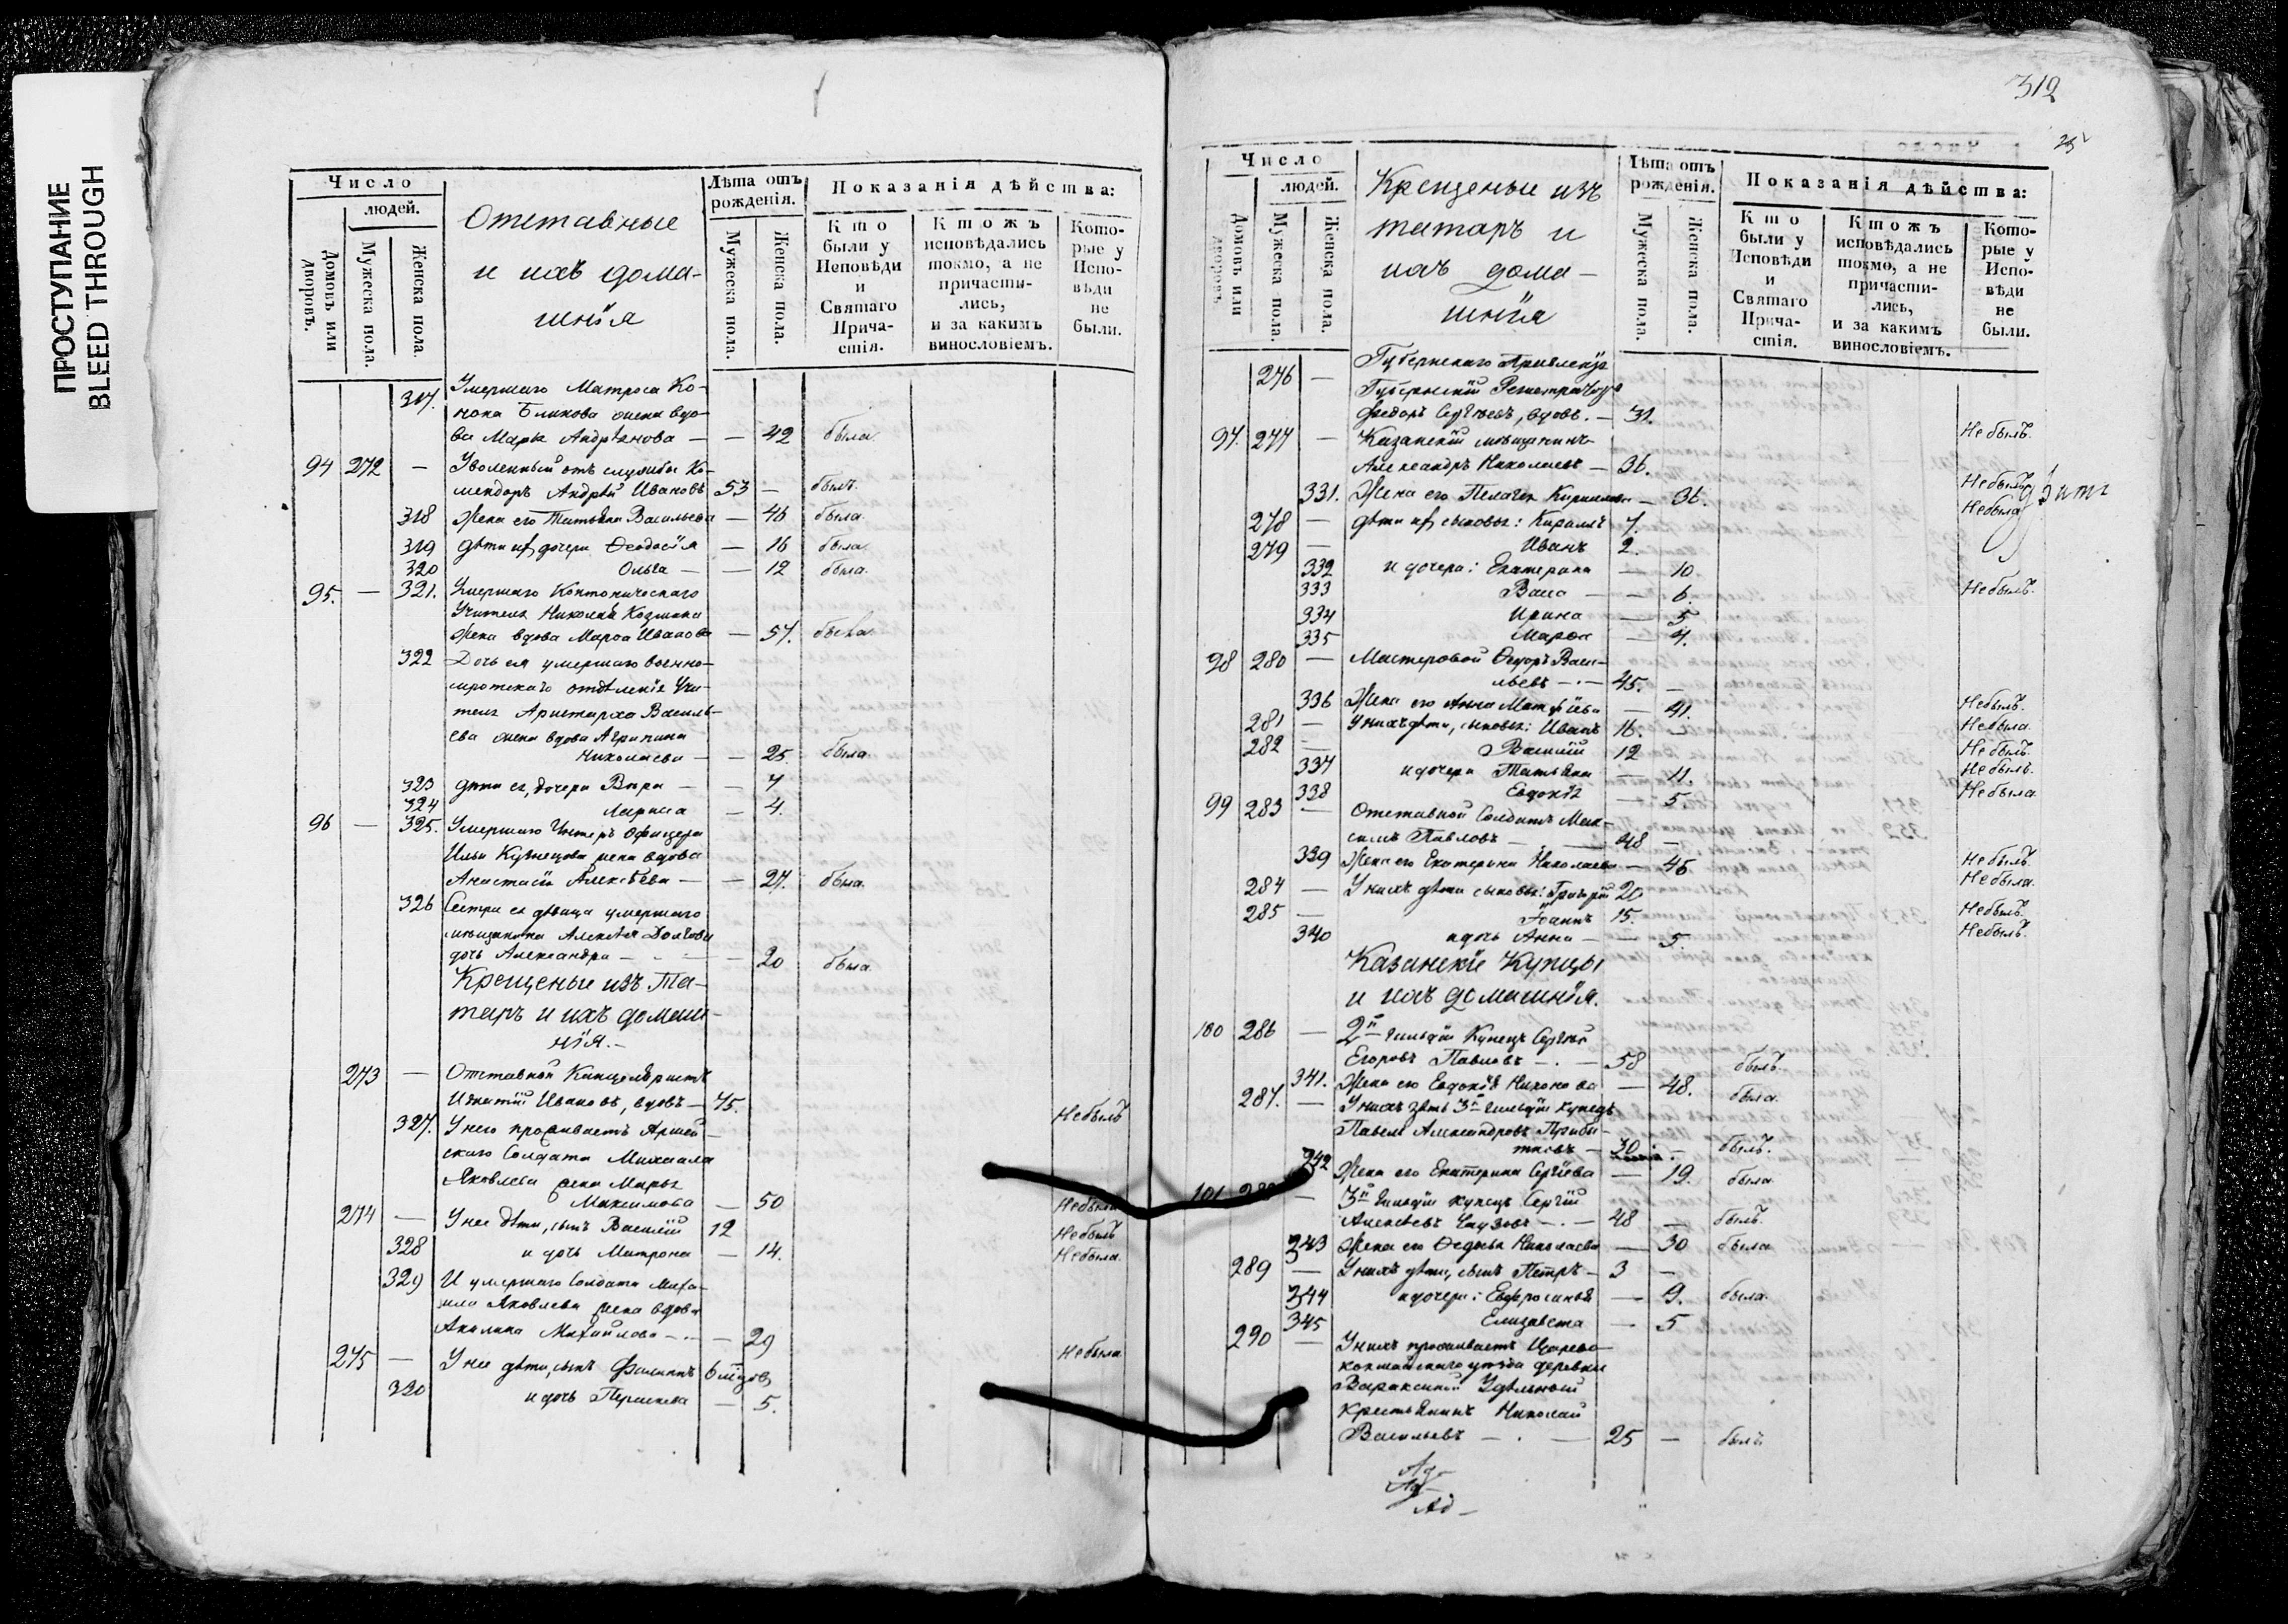 ПРОСТУПАНИЕ
BLEED THROUGH
Число
людей.
Домовъ или дворовъ.
Мужеска пола.
Женска пола.
Отставные
и ихъ дома-
шнія
Лѣта отъ рожденія.
Мужеска пола.
Женска пола.
Показанія дѣйства:
Кто были у Исповѣди и Святаго Прича-стія.
Ктожъ исповѣдались токмо, а не причасти-лись, и за какимъ винословіемъ.
Кото-рые у Испо-вѣди не были.
317. Умершаго Матроса Ко-
нона Бликова жена вдо-
ва Марья Андрѣянова — — 42 была.
94 272 — Уволенный отъ службы Ко-
мендоръ Андрей Ивановъ 53 — былъ.
318 Жена его Татьяна Васильева — 46 была.
319 дѣти ихъ дочери Ѳеодосія — 16 была.
320 Ольга — — 12 была.
95. — 321. Умершаго Контоническаго
Учителя Николая Козмина
жена вдова Марѳа Иванова — 57. была.
322 Дочь ея умершаго военно-
сиротскаго отдѣленія Учи-
теля Аристарха Василь-
ева жена вдова Агрипина
Николаева — — 25. была.
323 дѣти ея, дочери Вѣра — — 7
324 Лариса — 4.
96 — 325. Умершаго Унтеръ Офицера
Ильи Кузнецова жена вдова
Анастасія Алексѣева — — 27. была.
326 Сестра ея дѣвица умершаго
мѣщанина Алексѣя Долгова
дочь Александра — — — 20 была.
Крещеные изъ Та-
таръ и ихъ домаш-
нія.—
273 — Отставной Канцеляристъ
Игнатій Ивановъ, вдовъ — 75. Небылъ
327. У него проживаетъ Армей-
скаго Солдата Михаила
Яковлева жена Марья
Максимова — 50 Небыла
274 — У нее дѣти, сынъ Василій 12 Небылъ
328 и дочь Матрона — 14. Небыла.
329 И умершаго Солдата Миха-
ила Яковлева жена вдова
Акилина Михайлова — — 29 Небыла
275 — У нее дѣти, сынъ Филиппъ
320 и дочь Параскева — 5.
312
25
Число
людей.
Домовъ или дворовъ.
Мужеска пола.
Женска пола.
Крещеные изъ
татаръ и
ихъ дома-
шнія
Лѣта отъ рожденія.
Мужеска пола.
Женска пола.
Показанія дѣйства:
Кто были у Исповѣди и Святаго Прича-стія.
Ктожъ исповѣдались токмо, а не причасти-лись, и за какимъ винословіемъ.
Кото-рые у Испо-вѣди не были.
276 — Губернскаго
Губернскій Регистраторъ
Ѳедоръ Сергѣевъ, вдовъ. — 31. Небылъ.
97. 277 — Казанскій мѣщанинъ
Александръ Николаевъ — 36. Небылъ
331. Жена его Пелагея Кирилова — 36. Небыла
278 — дѣти ихъ сыновья: Кирилъ 7.
279 — Иванъ 2.
332 и дочери: Екатерина — 10. Небылъ.
333 Васа — — 6.
334 Ирина — 5
335 Марѳа — 4.
98 280 — Мастеровой Ѳедоръ Васи-
льевъ — 45. — Небылъ.
336 Жена его Анна Матѳѣева — 41. Небыла.
281 — У нихъ дѣти, сыновья: Иванъ 16. — Небылъ.
282 — Василій 12 Небылъ.
337 и дочери Татьяна — 11. Небыла
338 Евдокія — 5.
99 283 — Отставной Солдатъ Мак-
симъ Павловъ — 48 — Небылъ.
339 Жена его Екатерина Николаева — 45 Небыла.
284 — У нихъ дѣти сыновья: Григорій 20 Небылъ.
285 — Іоаннъ 15. Небылъ.
340 и дочь Анна — — 5.
Казанскіе Купцы
и ихъ домашнія.
100 286 — 2й гильдіи Купецъ Сергѣй
Егоровъ Павловъ — . — 58 былъ.
341. Жена его Евдокія Никонова — 48. была.
287. — У нихъ зять 3й гильдіи купецъ
Павелъ Александровъ Приби-
тковъ — 30 — былъ.
342 Жена его Екатерина Сергѣева — 19. была.
101 288 — 3й гильдіи купецъ Сергѣй
Алексѣевъ — . — 48 — былъ.
343 Жена его Ѳедосья Николаева — 30 была
289 — У нихъ дѣти, сынъ Петръ — 3 —
344 и дочери: Евфросинья — 9. была.
345 Елизавета — 5
290 — У нихъ проживаетъ Царево-
кокшайскаго уѣзда деревни
Вараксиной Удѣльной
крестьянинъ Николай
Васильевъ — . — 25 — былъ